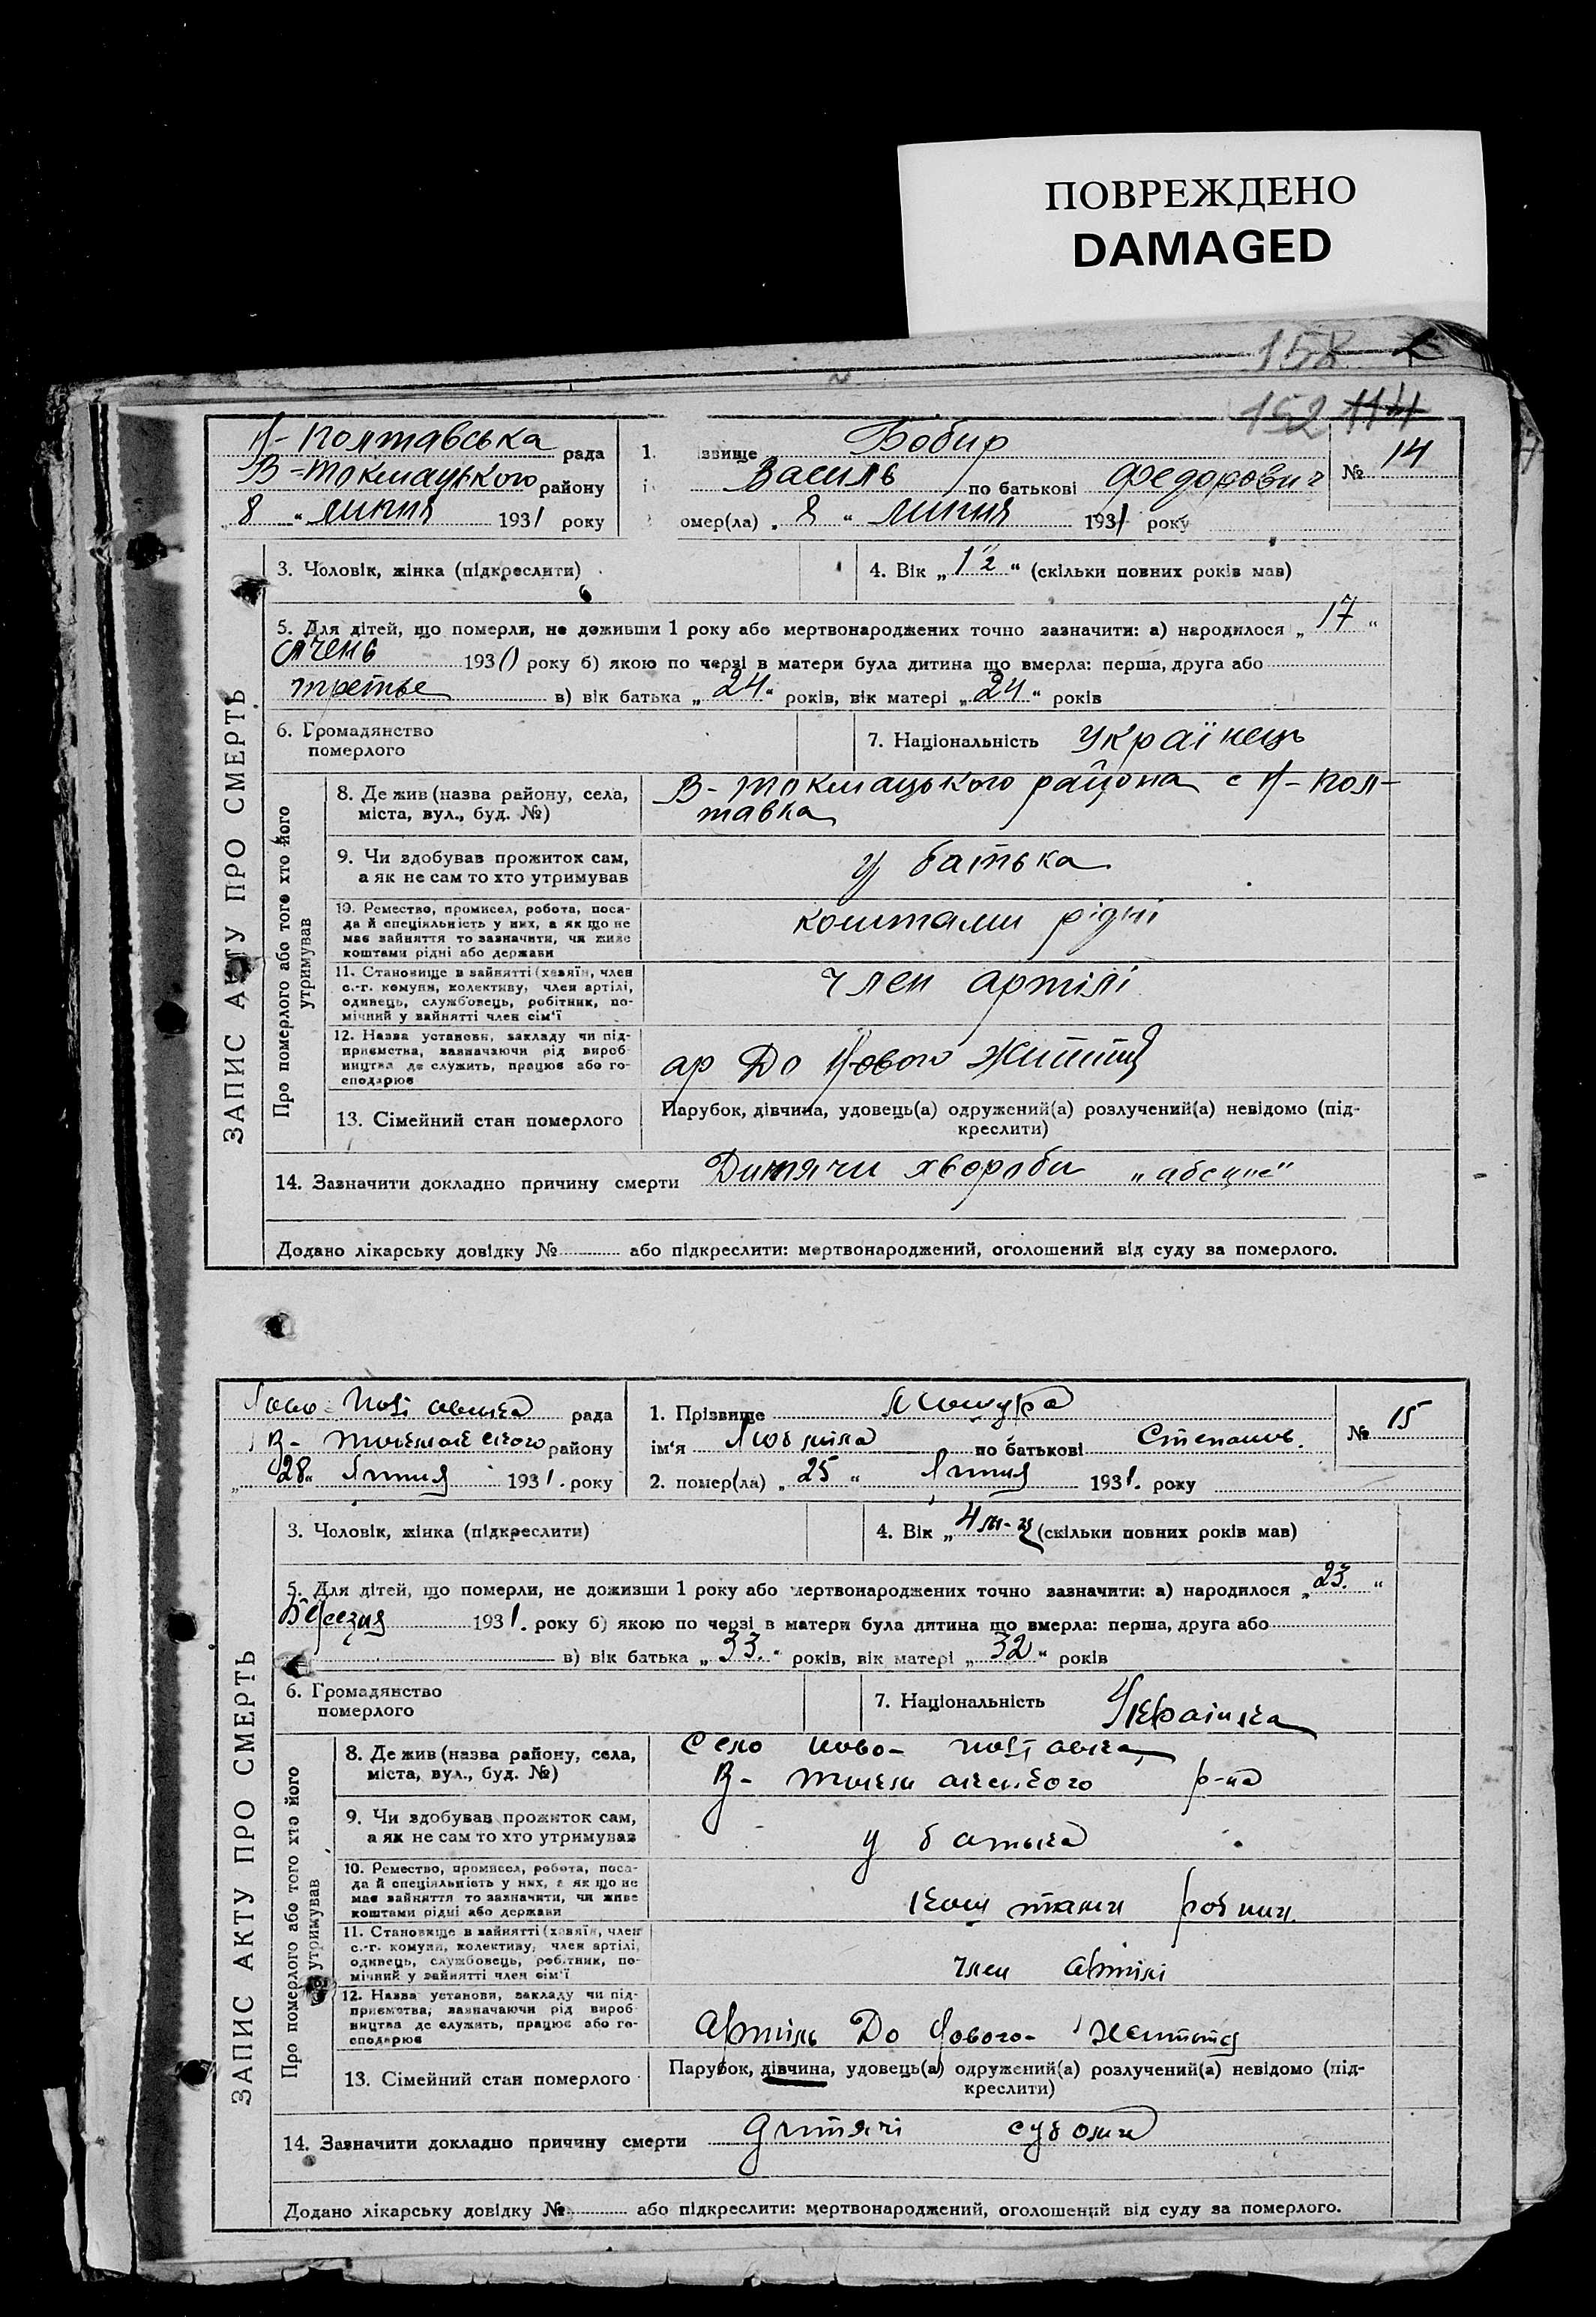 ПОВРЕЖДЕНО
DAMAGED
158
152 114
Н-Полтавська рада
В-Токмацького району
„ 8 “ липня 1931 року
1. ізвище Бобир
і Василь по батькові Федорович
омер(ла) „ 8 “ липня 1931 року
№ 14
3. Чоловік, жінка (підкреслити)
4. Вік „ 1½ “ (скільки повних років мав)
5. Для дітей, що померли, не доживши 1 року або мертвонароджених точно зазначити: а) народилося „ 17 “
січень 1930 року б) якою по черзі в матери була дитина що вмерла: перша, друга або
третье в) вік батька „ 24 “ років, вік матері „ 24 “ років
6. Громадянство
померлого
7. Національність Українець
ЗАПИС АКТУ ПРО СМЕРТЬ
Про померлого або того хто його
утримував
8. Де жив (назва району, села,
міста, вул., буд. №)
В-Токмацького района с Н-Пол-
тавка
9. Чи здобував прожиток сам,
а як не сам то хто утримував
у батька
10. Ремество, промисел, робота, поса-
да й спеціяльність у них, а як що не
має зайняття то зазначити, чи живе
коштами рідні або держави
коштами рідні
11. Становище в зайнятті (хазяїн, член
с.-г. комуни, колективу, член артілі,
одинець, службовець, робітник, по-
мічний у зайнятті член сім'ї
член артілі
12. Назва установи, закладу чи під-
приємства, зазначаючи рід вироб-
ництва де служить, працює або го-
сподарює
ар До Нового Життя
13. Сімейний стан померлого
Парубок, дівчина, удовець(а) одружений(а) розлучений(а) невідомо (під-
креслити)
14. Зазначити докладно причину смерти Дитячи хвороби
Додано лікарську довідку № або підкреслити: мертвонароджений, оголошений від суду за померлого.
Ново-Полтавська рада
В-Токмакского району
„ 28 “ Липня 1931. року
1. Прізвище
ім'я Любміла по батькові Степанов.
2. помер(ла) „ 25 “ Липня 1931. року
№ 15
3. Чоловік, жінка (підкреслити)
4. Вік „ 4 м-ці (скільки повних років мав)
5. Для дітей, що померли, не доживши 1 року або мертвонароджених точно зазначити: а) народилося „ 23. “
Березня 1931. року б) якою по черзі в матери була дитина що вмерла: перша, друга або
в) вік батька „ 33. “ років, вік матері „ 32 “ років
6. Громадянство
померлого
7. Національність Українка
ЗАПИС АКТУ ПРО СМЕРТЬ
Про померлого або того хто його
утримував
8. Де жив (назва району, села,
міста, вул., буд. №)
Село Ново-Полтавка
В-Токмакського р-на
9. Чи здобував прожиток сам,
а як не сам то хто утримував
у батька
10. Ремество, промисел, робота, поса-
да й спеціяльність у них, а як що не
має зайняття то зазначити, чи живе
коштами рідні або держави
коштами
11. Становище в зайнятті (хазяїн, член
с.-г. комуни, колективу, член артілі,
одинець, службовець, робітник, по-
мічний у зайнятті член сім'ї
член артілі
12. Назва установи, закладу чи під-
приємства, зазначаючи рід вироб-
ництва де служить, працює або го-
сподарює
Артіль До Нового-Життя
13. Сімейний стан померлого
Парубок, дівчина, удовець(а) одружений(а) розлучений(а) невідомо (під-
креслити)
14. Зазначити докладно причину смерти дитячі
Додано лікарську довідку № або підкреслити: мертвонароджений, оголошений від суду за померлого.